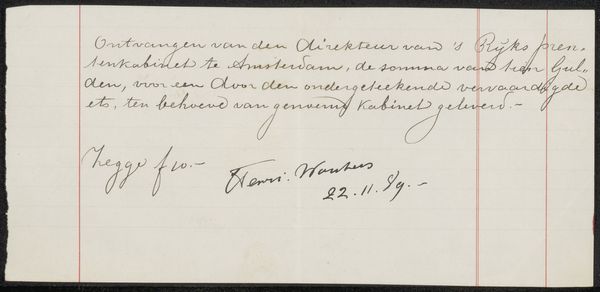 Ontvangen van den direkteur van 's Rijks pren-
tenkabinet te Amsterdam, de somma van tien Gul„
den, voor een door den ondergeteekende vervaardigde
ets, ten behoeve van genoemd Kabinet geleverd.-
Zegge f10.-
Henri. Wouters
22.11.89.-